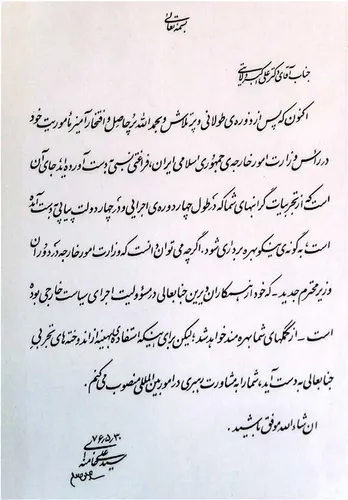 بسمه تعالی
جناب آقای دکتر علی اکبر ولایتی
اکنون که پس از دوره‌ی طولانی و پر تلاش و بحمد الله پر حاصل و افتخارآمیز مأموریت خود
در رأس وزارت امور خارجه‌ی جمهوری اسلامی ایران، فراغتی نسبی بدست آورده‌اید جای آن
است که از تجربیات گرانبهای شما که در طول چهار دوره‌ی اجرایی و در چهار دولت پیاپی بدست آمده
است به گونه‌ی نیکو بهره برداری شود، اگرچه می توان دانست که وزارت امور خارجه در دوران
وزیر محترم جدید - که خود از همکاران دیرین جنابعالی در مسؤولیت اجرای سیاست خارجی بوده
است - از کمکهای شما بهره مند خواهد شد؛ لیکن برای اینکه استفاده‌ی بهینه از اندوخته‌های تجربی
جنابعالی به دست آید، شما را به مشاورت رهبری در امور بین المللی منصوب می کنم.
ان شاء الله موفق باشید.
۷۶٫۵٫۳۰
سید علی خامنه‌ای